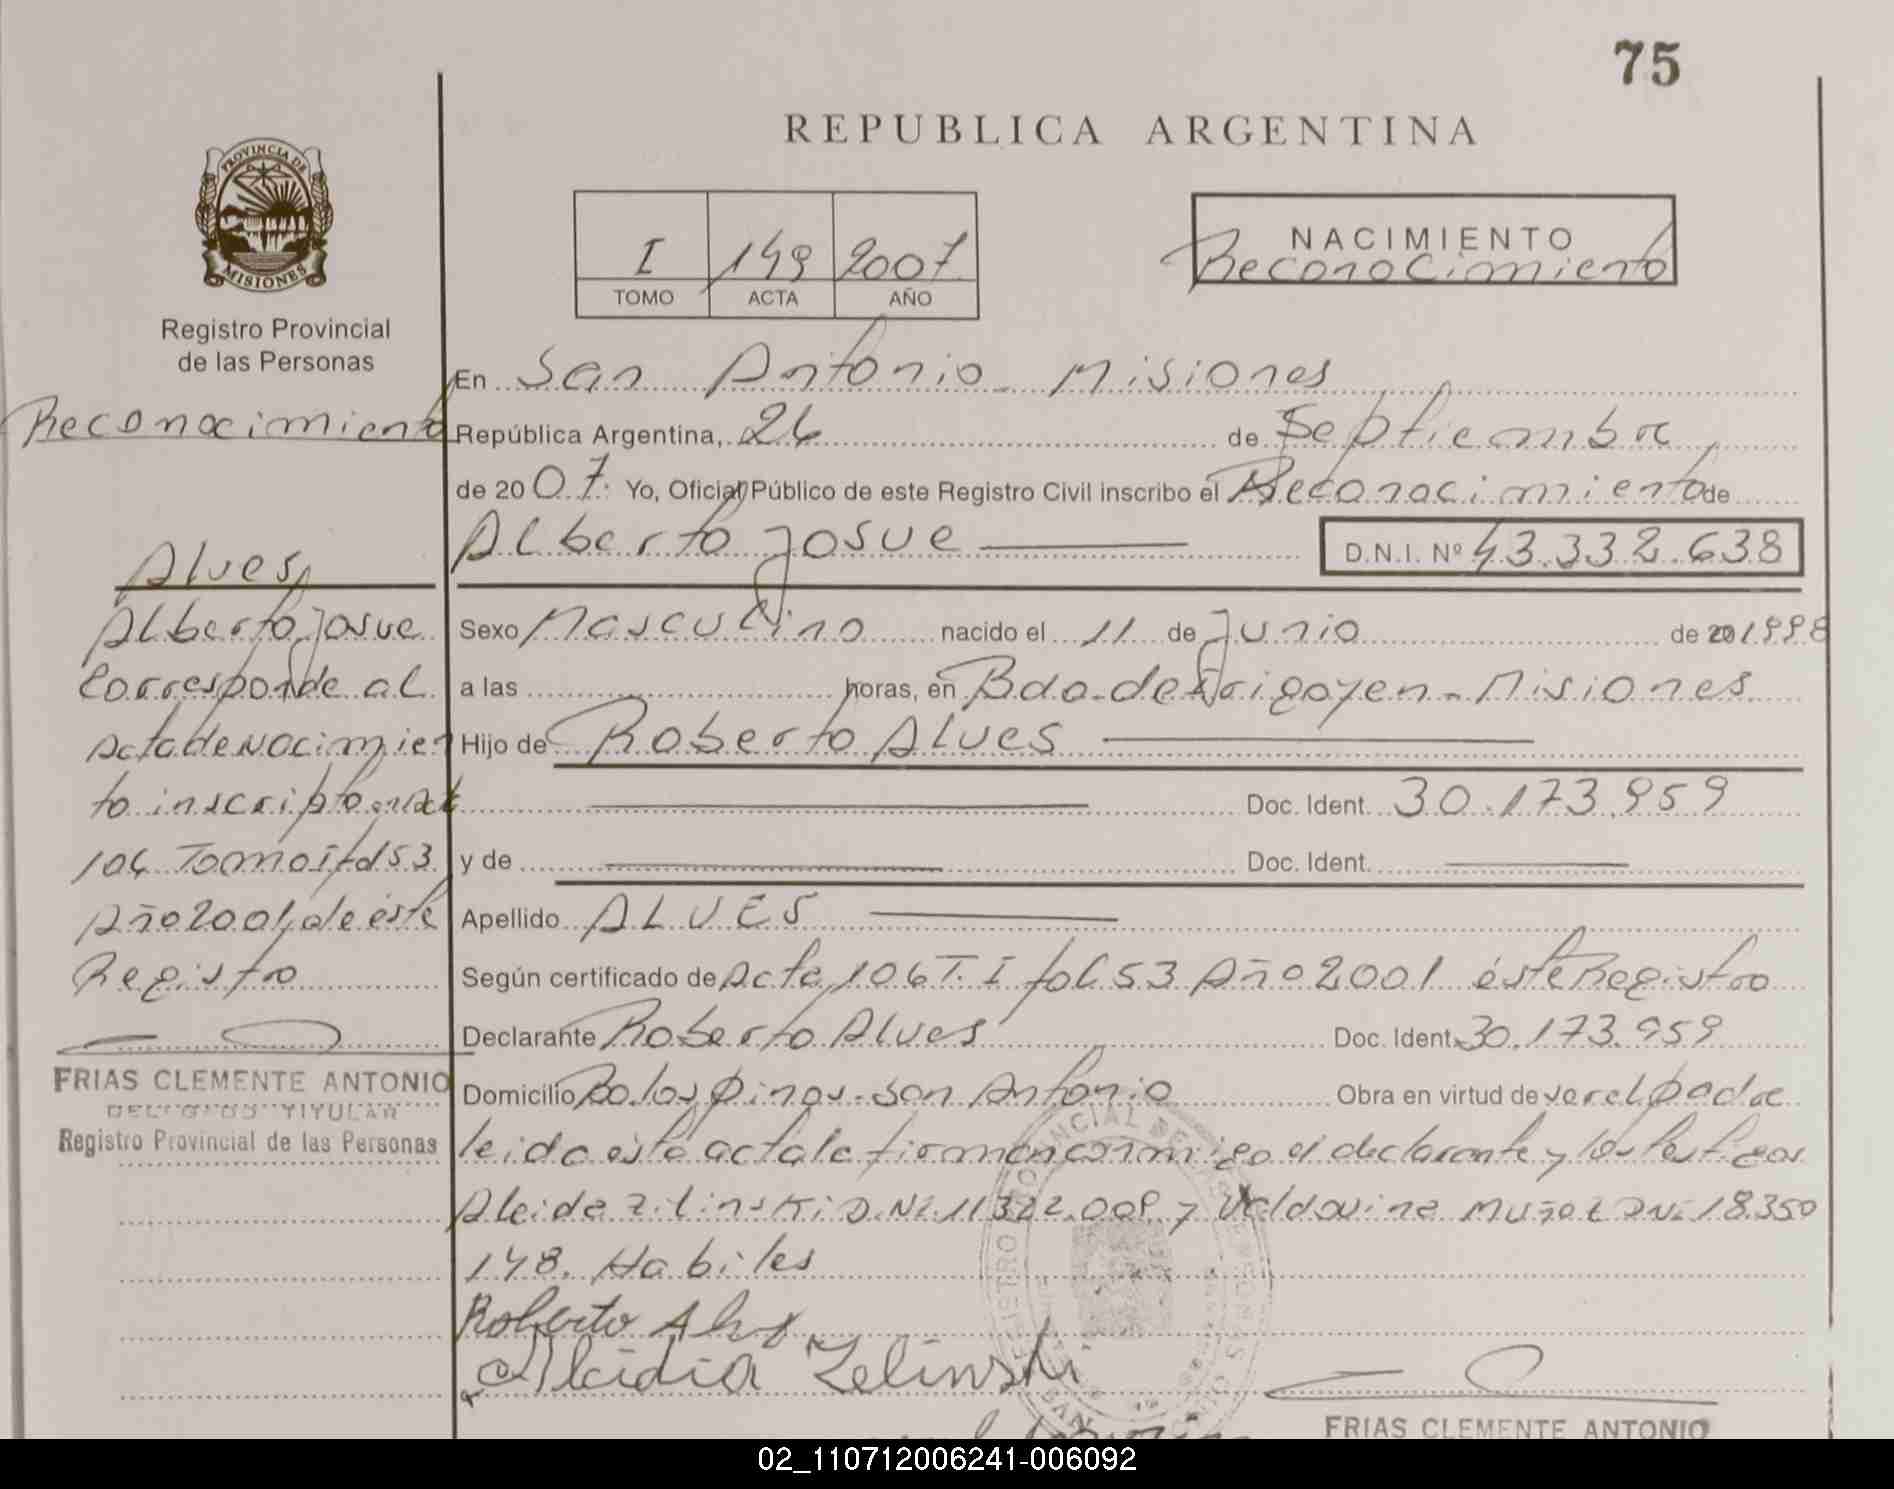 75
REPUBLICA ARGENTINA
PROVINCIA DE
MISIONES
Registro Provincial
de las Personas
I 149 2007
TOMO ACTA AÑO
NACIMIENTO
Reconocimiento
Reconocimiento
Alves
Alberto Josue
Corresponde al
Acta de Nacimien
to inscripto
106 Tomo I fol 53
Año 2001 de éste
Registro
FRIAS CLEMENTE ANTONIO
TITULAR
Registro Provincial de las Personas
En San Antonio - Misiones
República Argentina, 26 de Septiembre
de 2007. Yo, Oficial Público de este Registro Civil inscribo el Reconocimiento de
Alberto Josue D.N.I. Nº 43.332.638
Sexo Masculino nacido el 11 de Junio de 20 1998
a las horas, en Bdo. de Irigoyen - Misiones
Hijo de Roberto Alves
Doc. Ident. 30.173.959
y de Doc. Ident.
Apellido ALVES
Según certificado de Acta 106 T. I fol 53 Año 2001 éste Registro
Declarante Roberto Alves Doc. Ident. 30.173.959
Domicilio Bo. los pinos - San Antonio Obra en virtud de ser el padre
leida ésta acta la firman conmigo el declarante y los testigos
Aleida Zilinski D.Ni. 11322.009 y Valdovina Muñoz DNi 18.350
148. Habiles
Roberto Alves
Alcidia Zelinski
FRIAS CLEMENTE ANTONIO
02_110712006241-006092